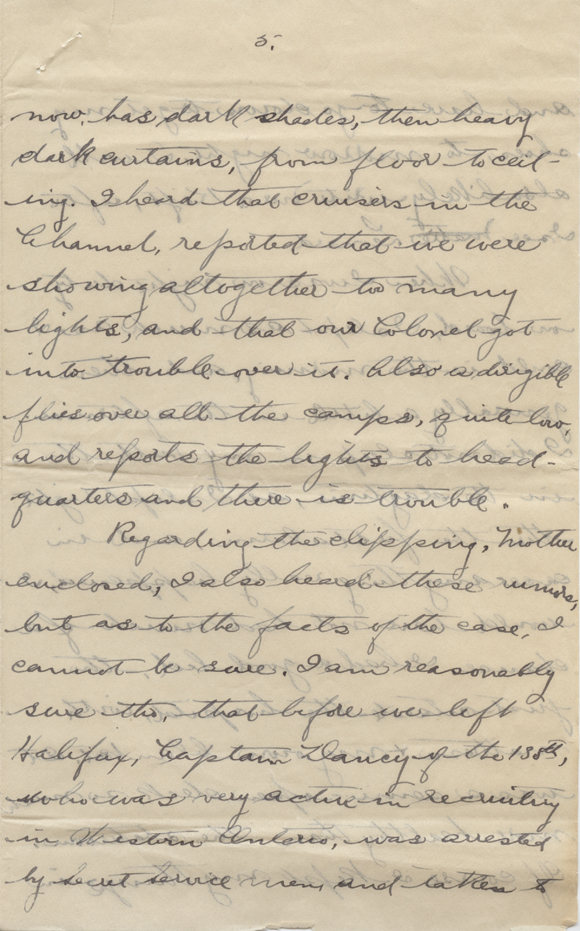 5.
now. has, dark shades, then heavy
dark curtains, from floor to ceil-
ing. I heard that cruisers in the
Channel, reported that we were
showing altogether too many
lights, and that our Colonel got
into trouble over it. Also a dirigible
flies over all the camps, quite low,
and reports the lights to head-
quarters and there is trouble.
Regarding the clipping, Mother
enclosed, I also heard these rumors,
but as to the facts of the case, I
cannot be sure. I am reasonably
sure tho, that before we left
Halifax, Captain Dancy of the 138th,
who was very active in recruiting
in Western Ontario, was arrested
by secret service men, and taken to